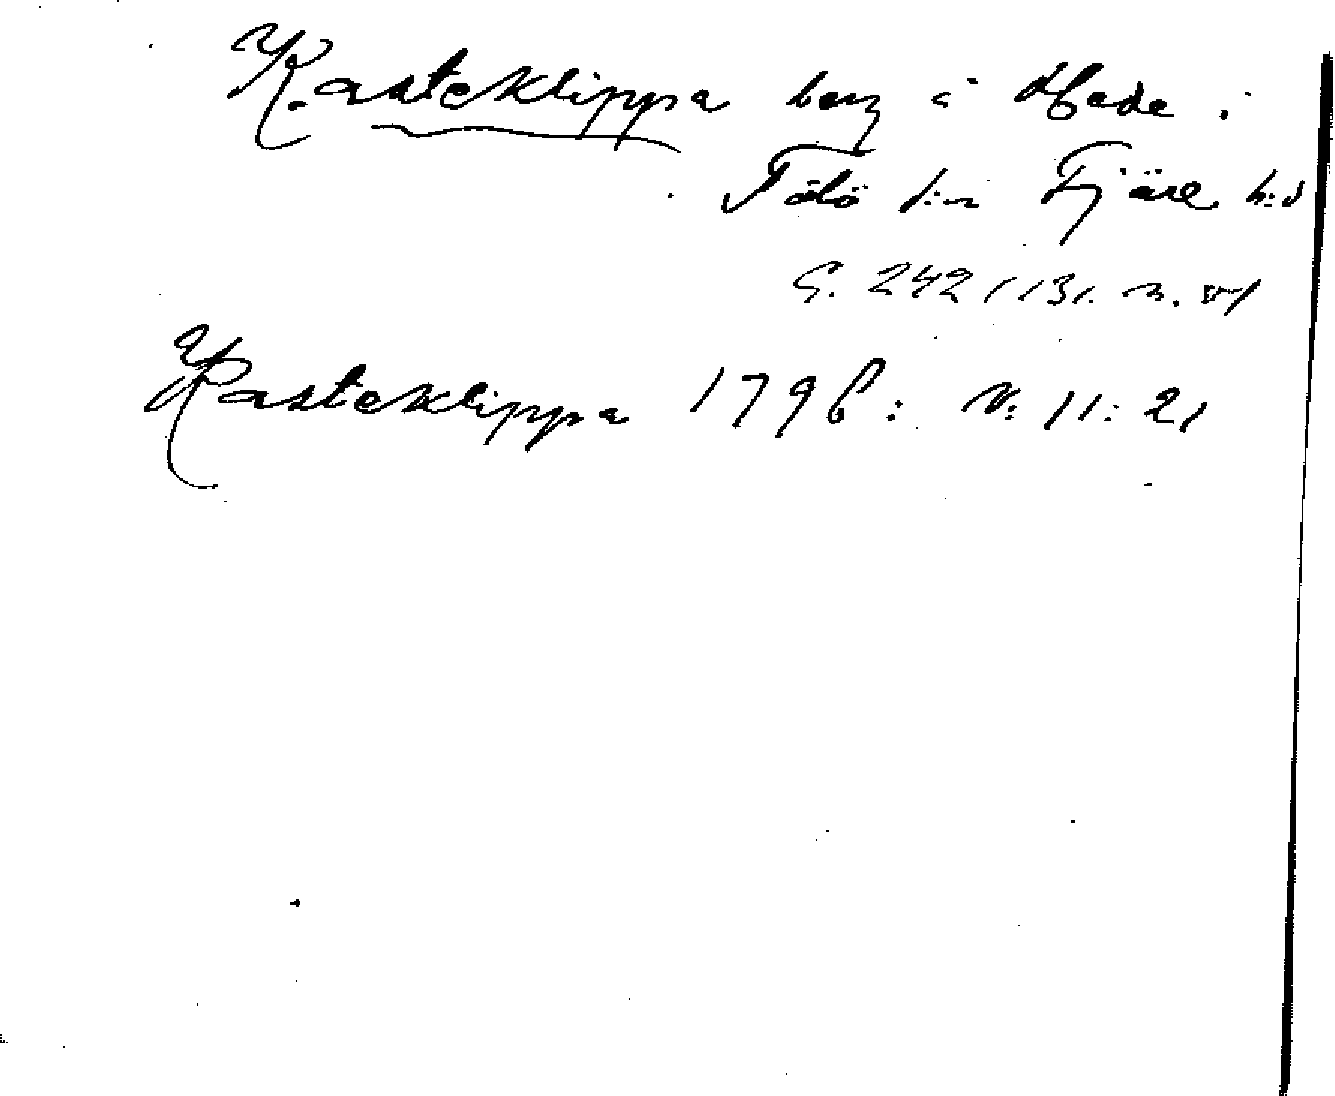 Kasteklippa berg å Hede i
Tölö s:n Fjäre h:d
G. 242 (131. n. sv)
Kasteklippa 1796: N: 11: 21